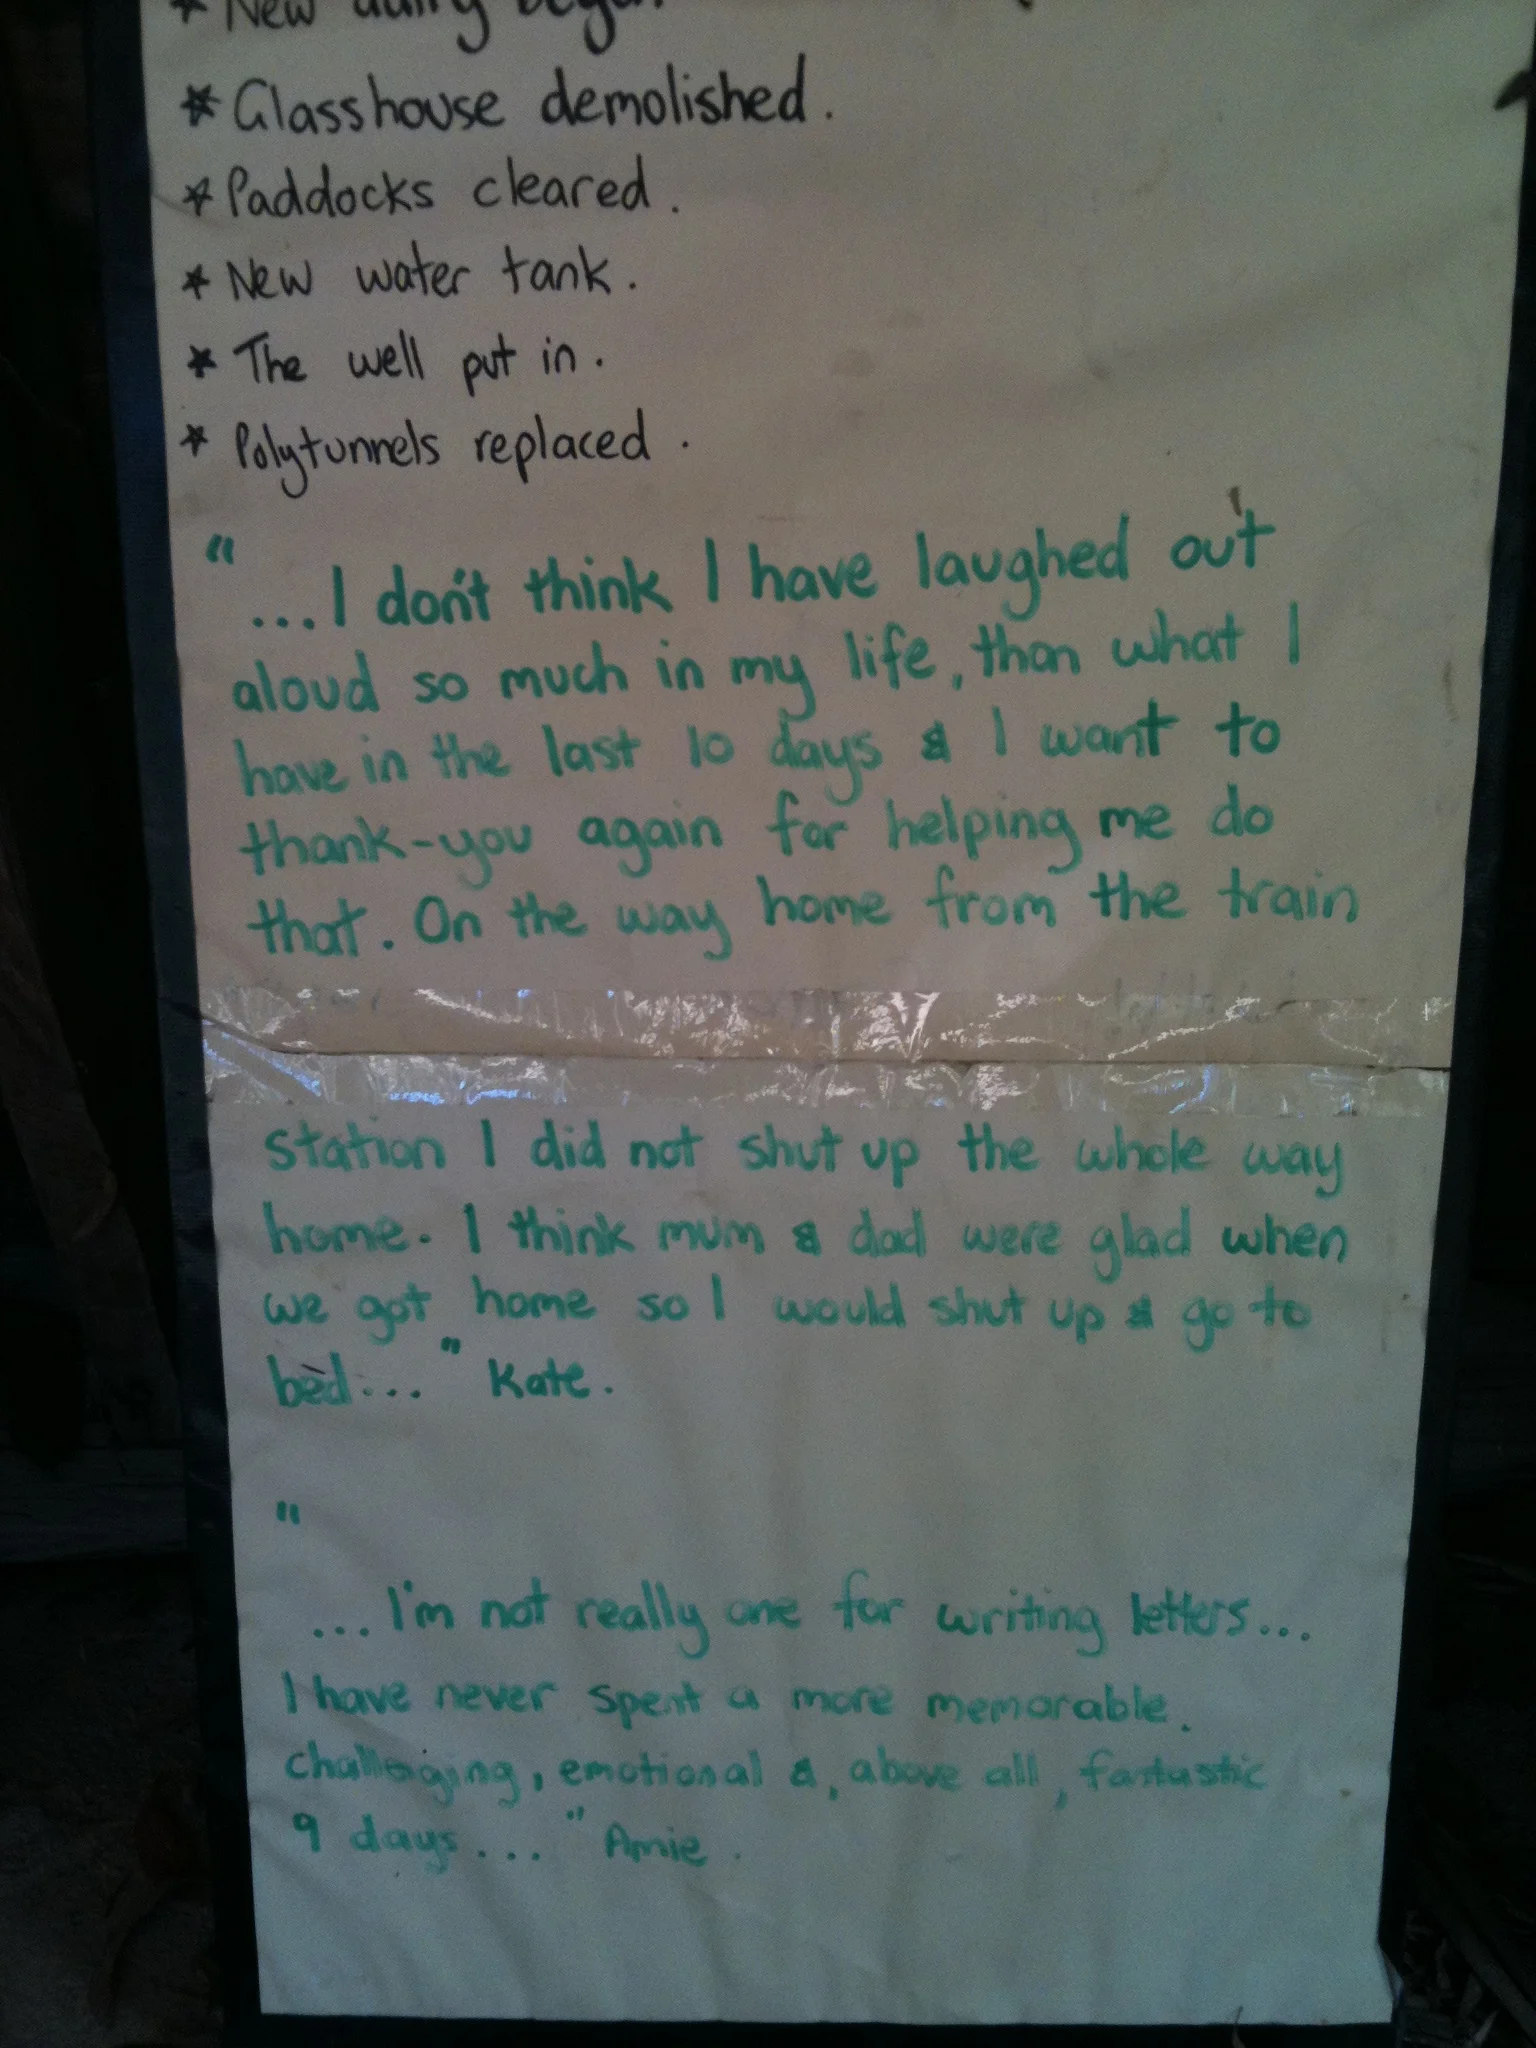 * New dairy began.
* Glasshouse demolished.
* Paddocks cleared.
* New water tank.
* The well put in.
* Polytunnels replaced.
"...I don't think I have laughed out
aloud so much in my life, than what I
have in the last 10 days & I want to
thank-you again for helping me do
that. On the way home from the train
station I did not shut up the whole way
home. I think mum & dad were glad when
we got home so I would shut up & go to
bed..." Kate.
"
...I'm not really one for writing letters...
I have never spent a more memorable,
challenging, emotional &, above all, fantastic
9 days..." Amie.